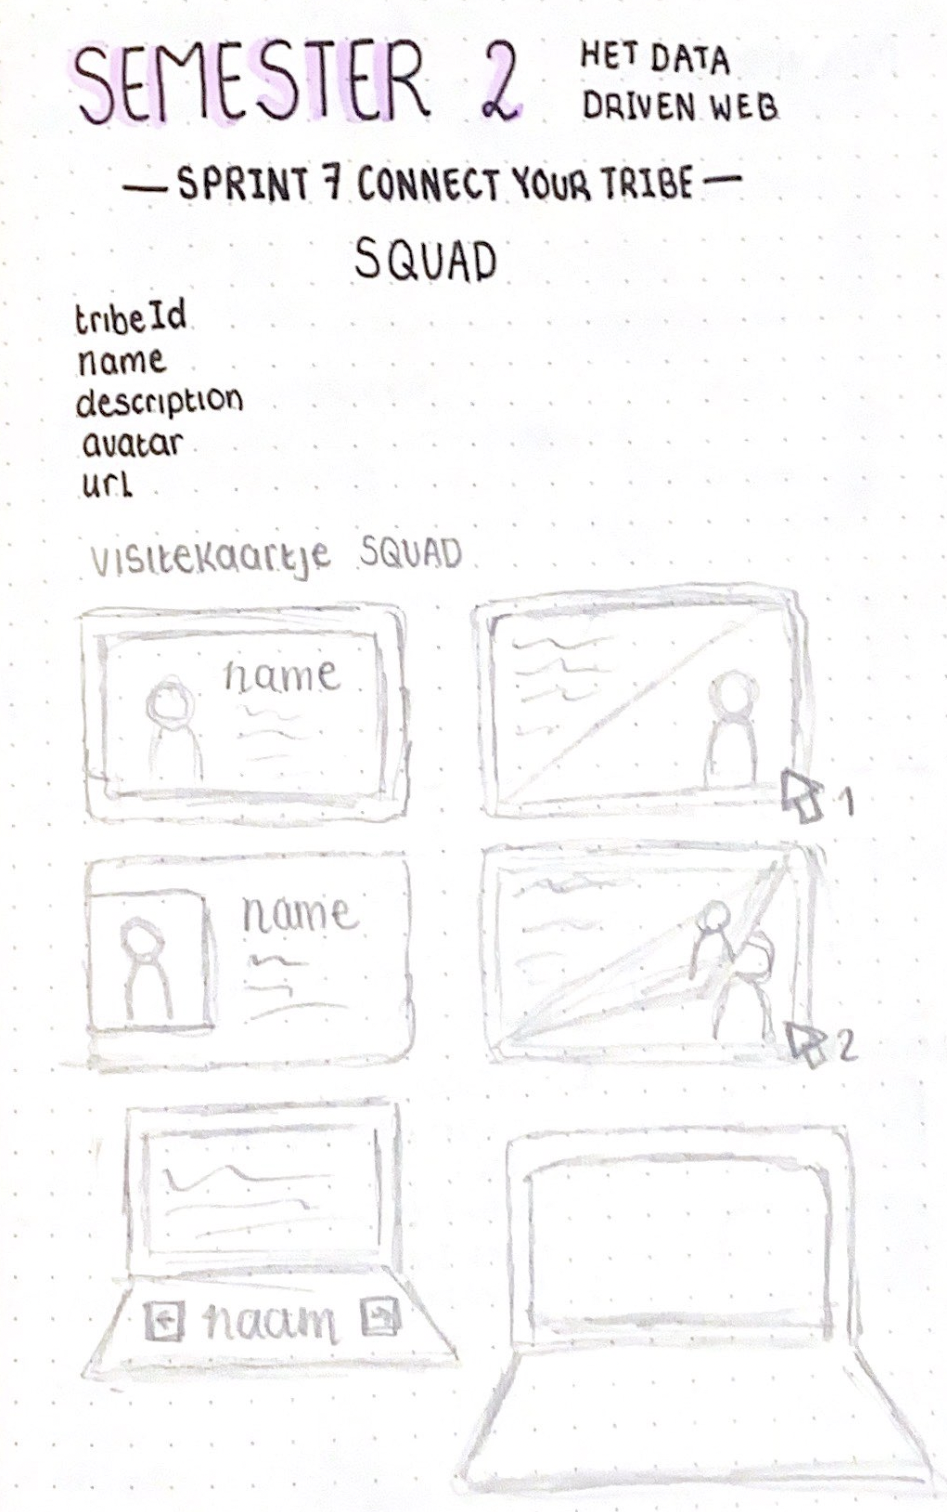 SEMESTER 2
HET DATA
DRIVEN WEB
— SPRINT 7 CONNECT YOUR TRIBE —
SQUAD
tribeId
name
description
avatar
url
visitekaartje SQUAD
name
1
name
2
← naam →